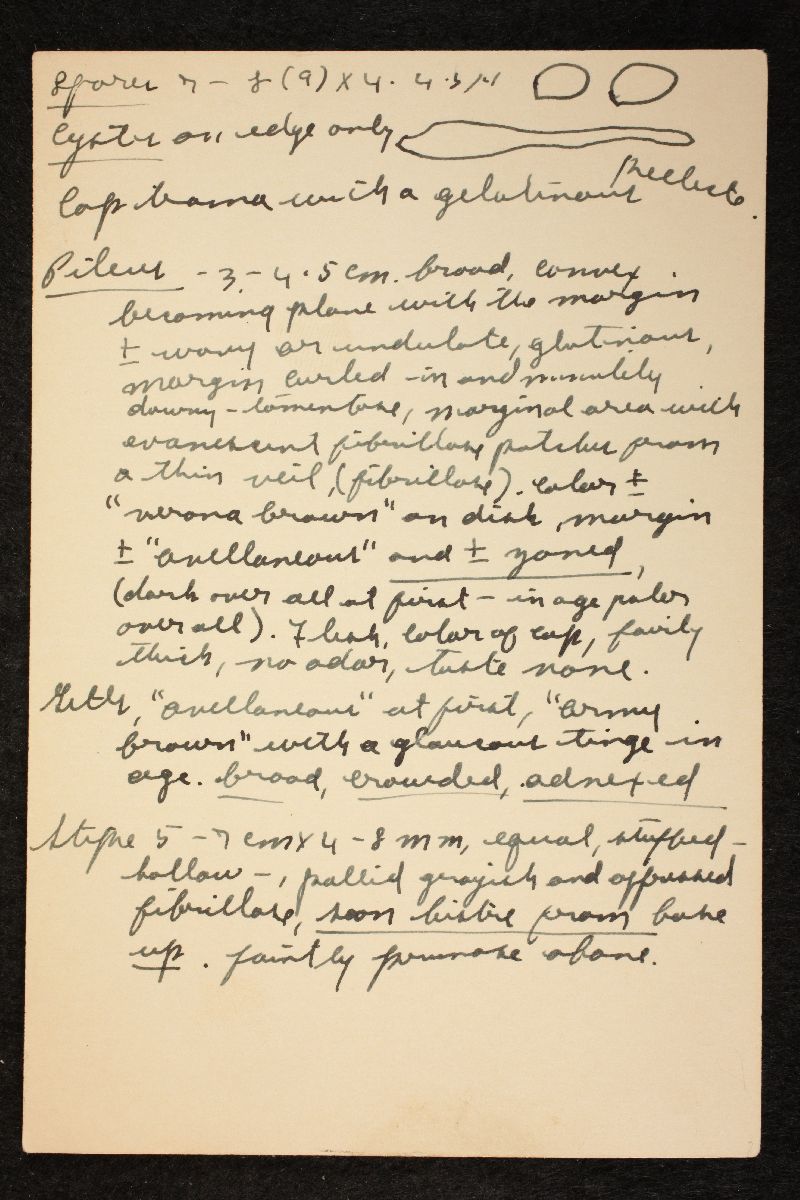 Spores 7 - 8 (9) x 4 - 4.5 μ
Cysts on edge only
Cap trama with a gelatinous pellicle.
Pileus - 3 - 4.5 cm. broad, convex
becoming plane with the margin
± wavy or undulate, glutinous,
margin curled in and minutely
downy-tomentose, marginal area with
evanescent fibrillose patches from
a thin veil, (fibrillose). Color ±
"verona brown" on disk, margin
± "avellaneous" and ± zoned,
(dark over all at first - in age paler
over all). Flesh, color of cap, fairly
thick, no odor, taste none.
Gills, "avellaneous" at first, "army
brown" with a glaucous tinge in
age. broad, crowded, adnexed
Stipe 5 - 7 cm x 4 - 8 mm, equal, stuffed -
hollow -, pallid grayish and appressed
fibrillose, soon bistre from base
up. faintly pruinose above.